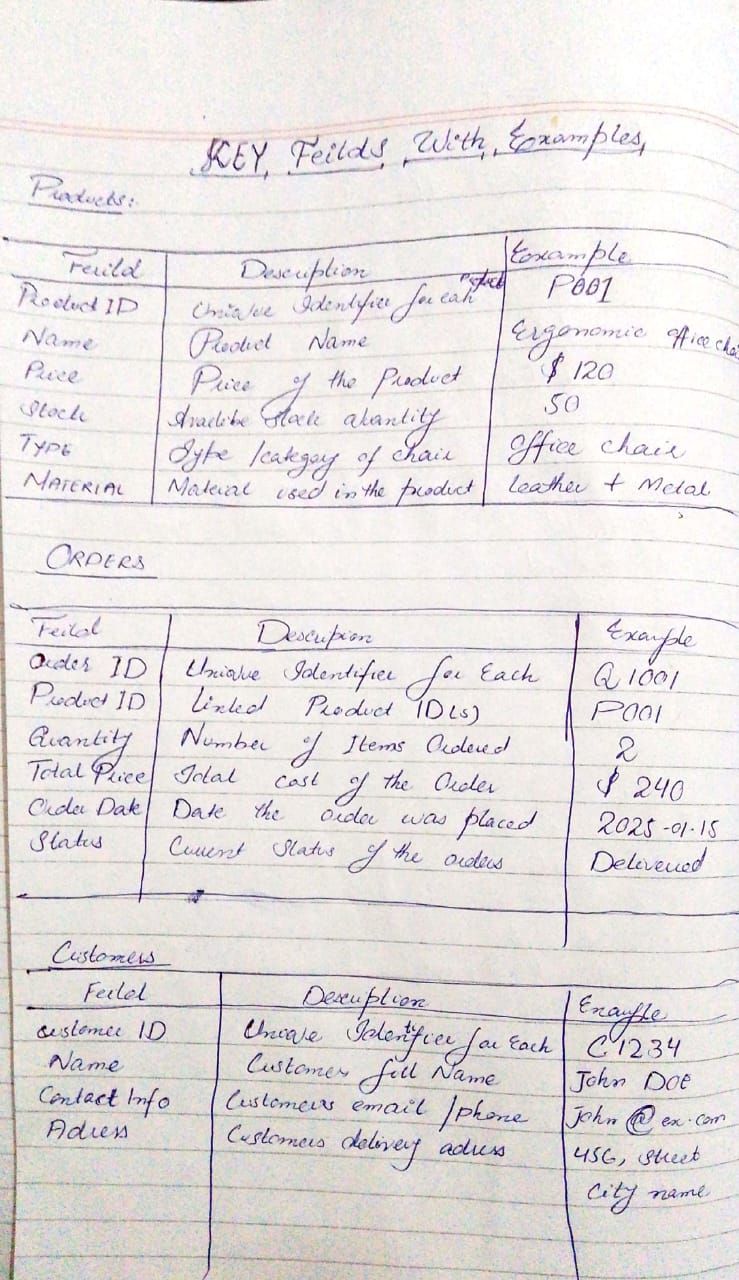 KEY Feilds With Examples,
Products:
Feild Description Example
Product ID Uniqve Identifier for eah Product P001
Name Product Name Ergonomic office chai
Price Price of the Product $ 120
Stock Stock quantity 50
TYPE Type /categoy of chair Office chair
MATERIAL Material used in the product leather + Metal
ORDERS
Feild Description Example
Order ID Uniqve Identifier for Each O1001
Product ID Linked Product ID(s) P001
Quantity Number of Items Ordered 2
Total Price Total cost of the Order $ 240
Order Date Date the order was placed 2025-01-15
Status Current Status of the orders Delivered
Customers
Feild Description Example
customer ID Uniqve Identifier for Each C1234
Name Customer full Name John DOE
Contact Info Customers email /phone John @ ex.com
Adress Customers delivery adress 456, street
City name